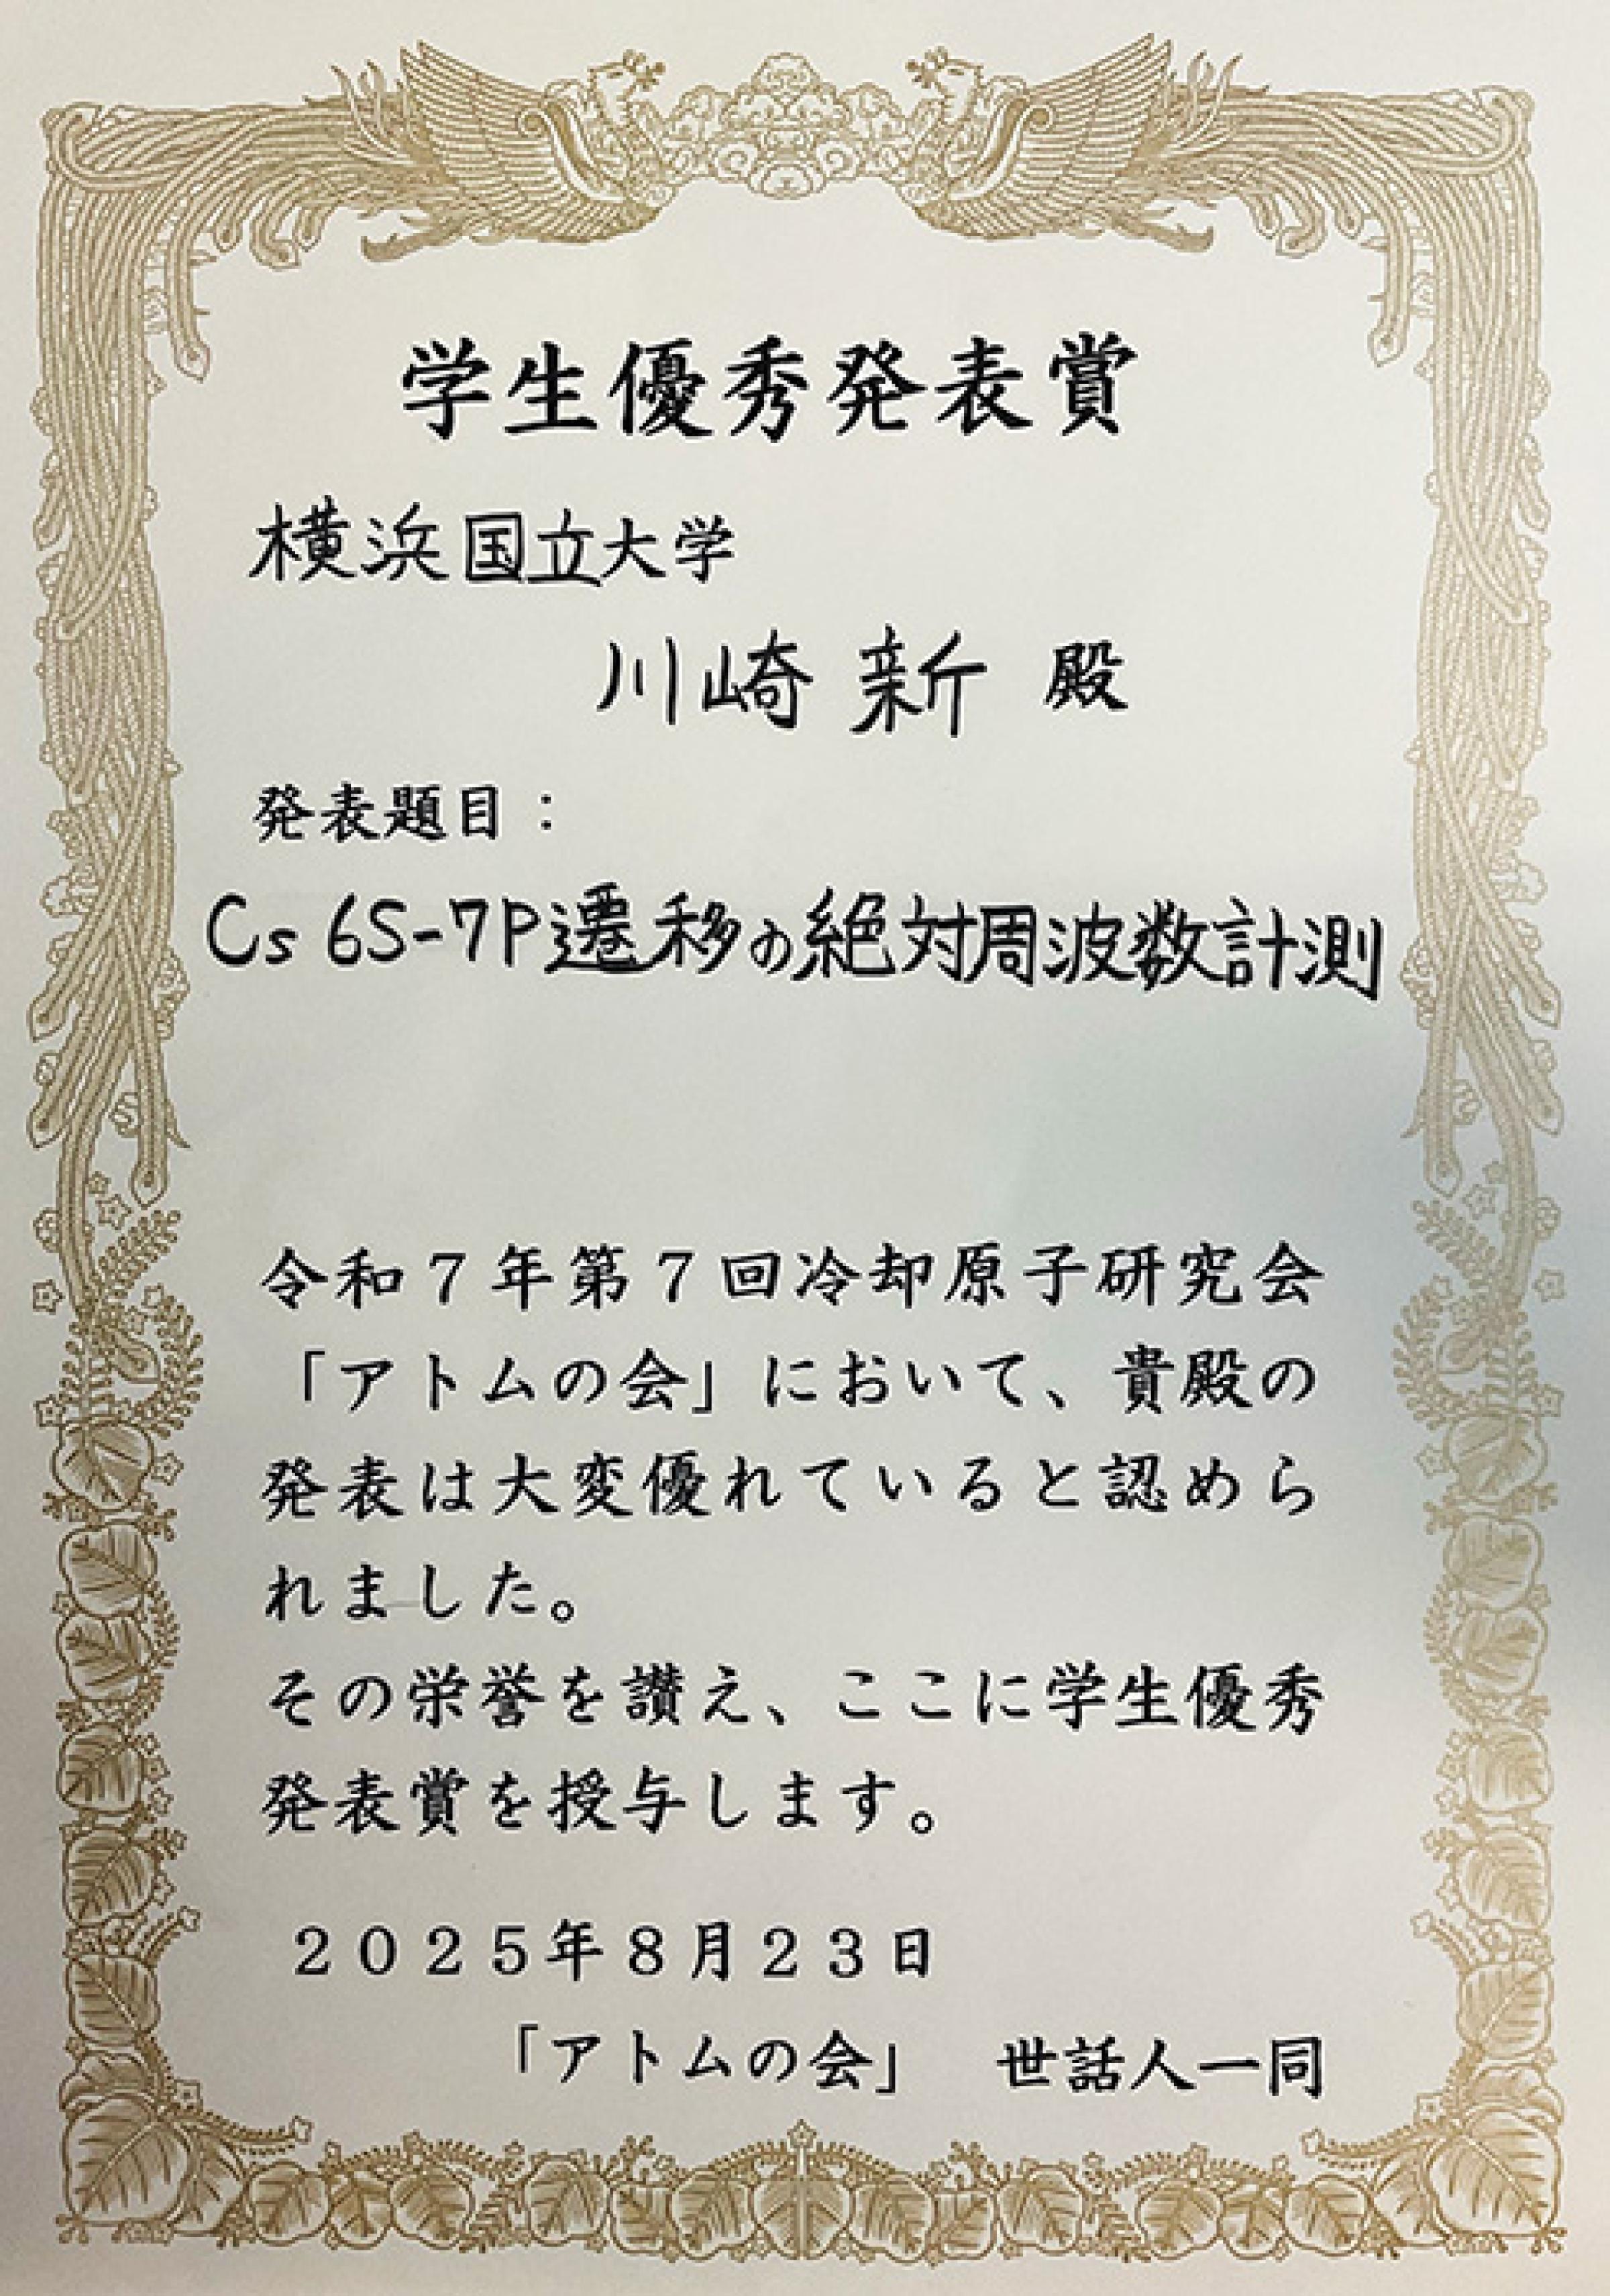 学生優秀発表賞
横浜国立大学
川崎 新 殿
発表題目：
Cs 6S-7P遷移の絶対周波数計測
令和７年第７回冷却原子研究会
「アトムの会」において、貴殿の
発表は大変優れていると認めら
れました。
その栄誉を讃え、ここに学生優秀
発表賞を授与します。
２０２５年８月２３日
「アトムの会」 世話人一同